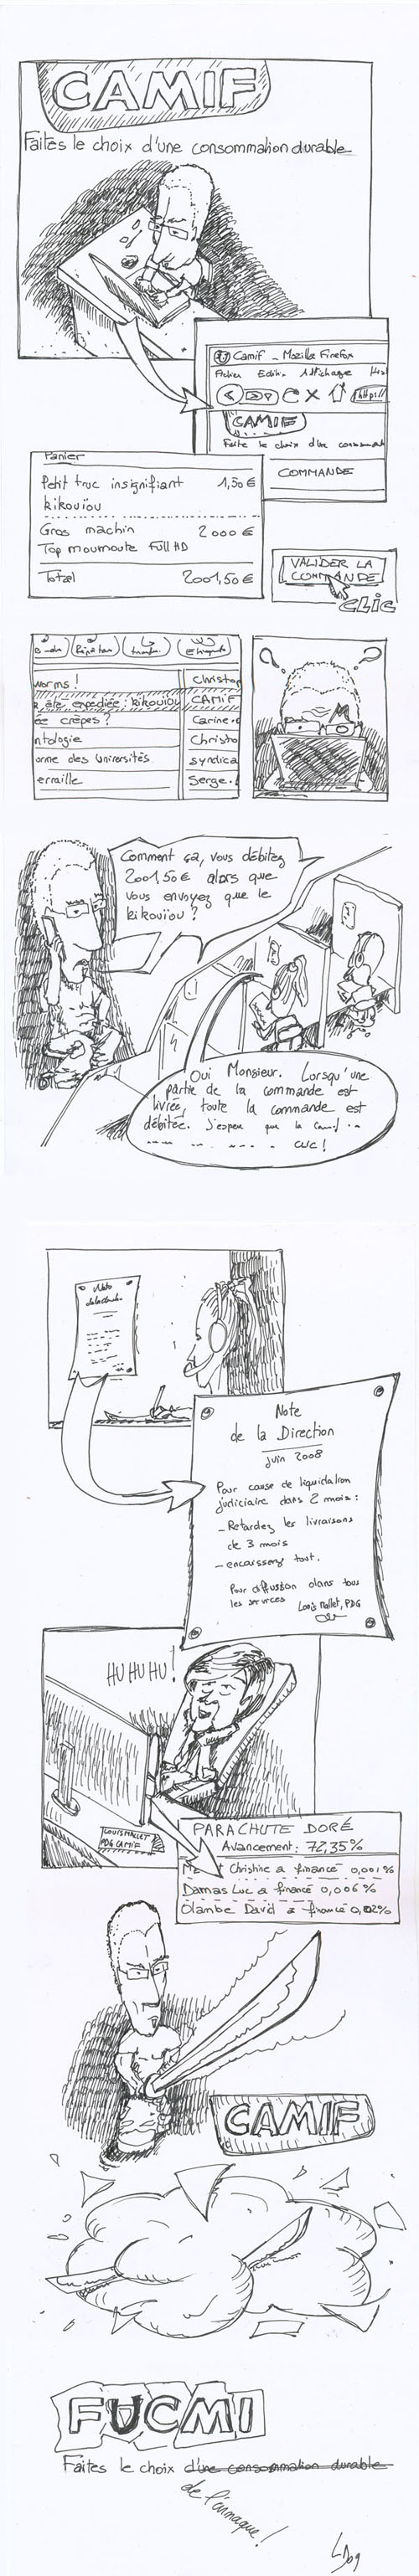 CAMIF
Faites le choix d'une consommation durable
Camif - Mozilla Firefox
Fichier Edition Affichage His
http://
CAMIF
Faites le choix d'une consommat
COMMANDE
Panier
Petit truc insignifiant 1,50 €
kikouïou
Gros machin 2000 €
Top moumoute Full HD
Total 2001,50 €
VALIDER LA
COMMANDE
CLIC
worms ! Christop
été expédiée : kikouïou CAMIF
crêpes ? Carine
ntologie Christo
orme des Universités syndica
erraille Serge.
? ?
Comment ça, vous débitez
2001,50 € alors que
vous envoyez que le
kikouïou ?
Oui Monsieur. Lorsqu'une
partie de la commande est
livrée, toute la commande est
débitée. J'espère que la Camif ...
... CLIC !
Note
de la Direction
juin 2008
Pour cause de liquidation
judiciaire dans 2 mois :
- Retardez les livraisons
de 3 mois
- encaissez tout.
Pour diffusion dans tous
les services Louis Mallet, PDG
HU HU HU !
LOUIS MALLET
PDG CAMIF
PARACHUTE DORÉ
Avancement : 72,35%
Christine a financé 0,001 %
Damas Luc a financé 0,006 %
Olambe David a financé 0,02%
CAMIF
FUCMI
Faites le choix d'une consommation durable
de l'arnaque !